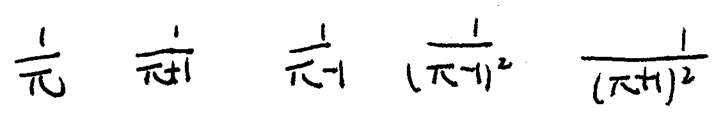 $\frac{1}{\pi}$ $\frac{1}{\pi+1}$ $\frac{1}{\pi-1}$ $\frac{1}{(\pi-1)^2}$ $\frac{1}{(\pi+1)^2}$